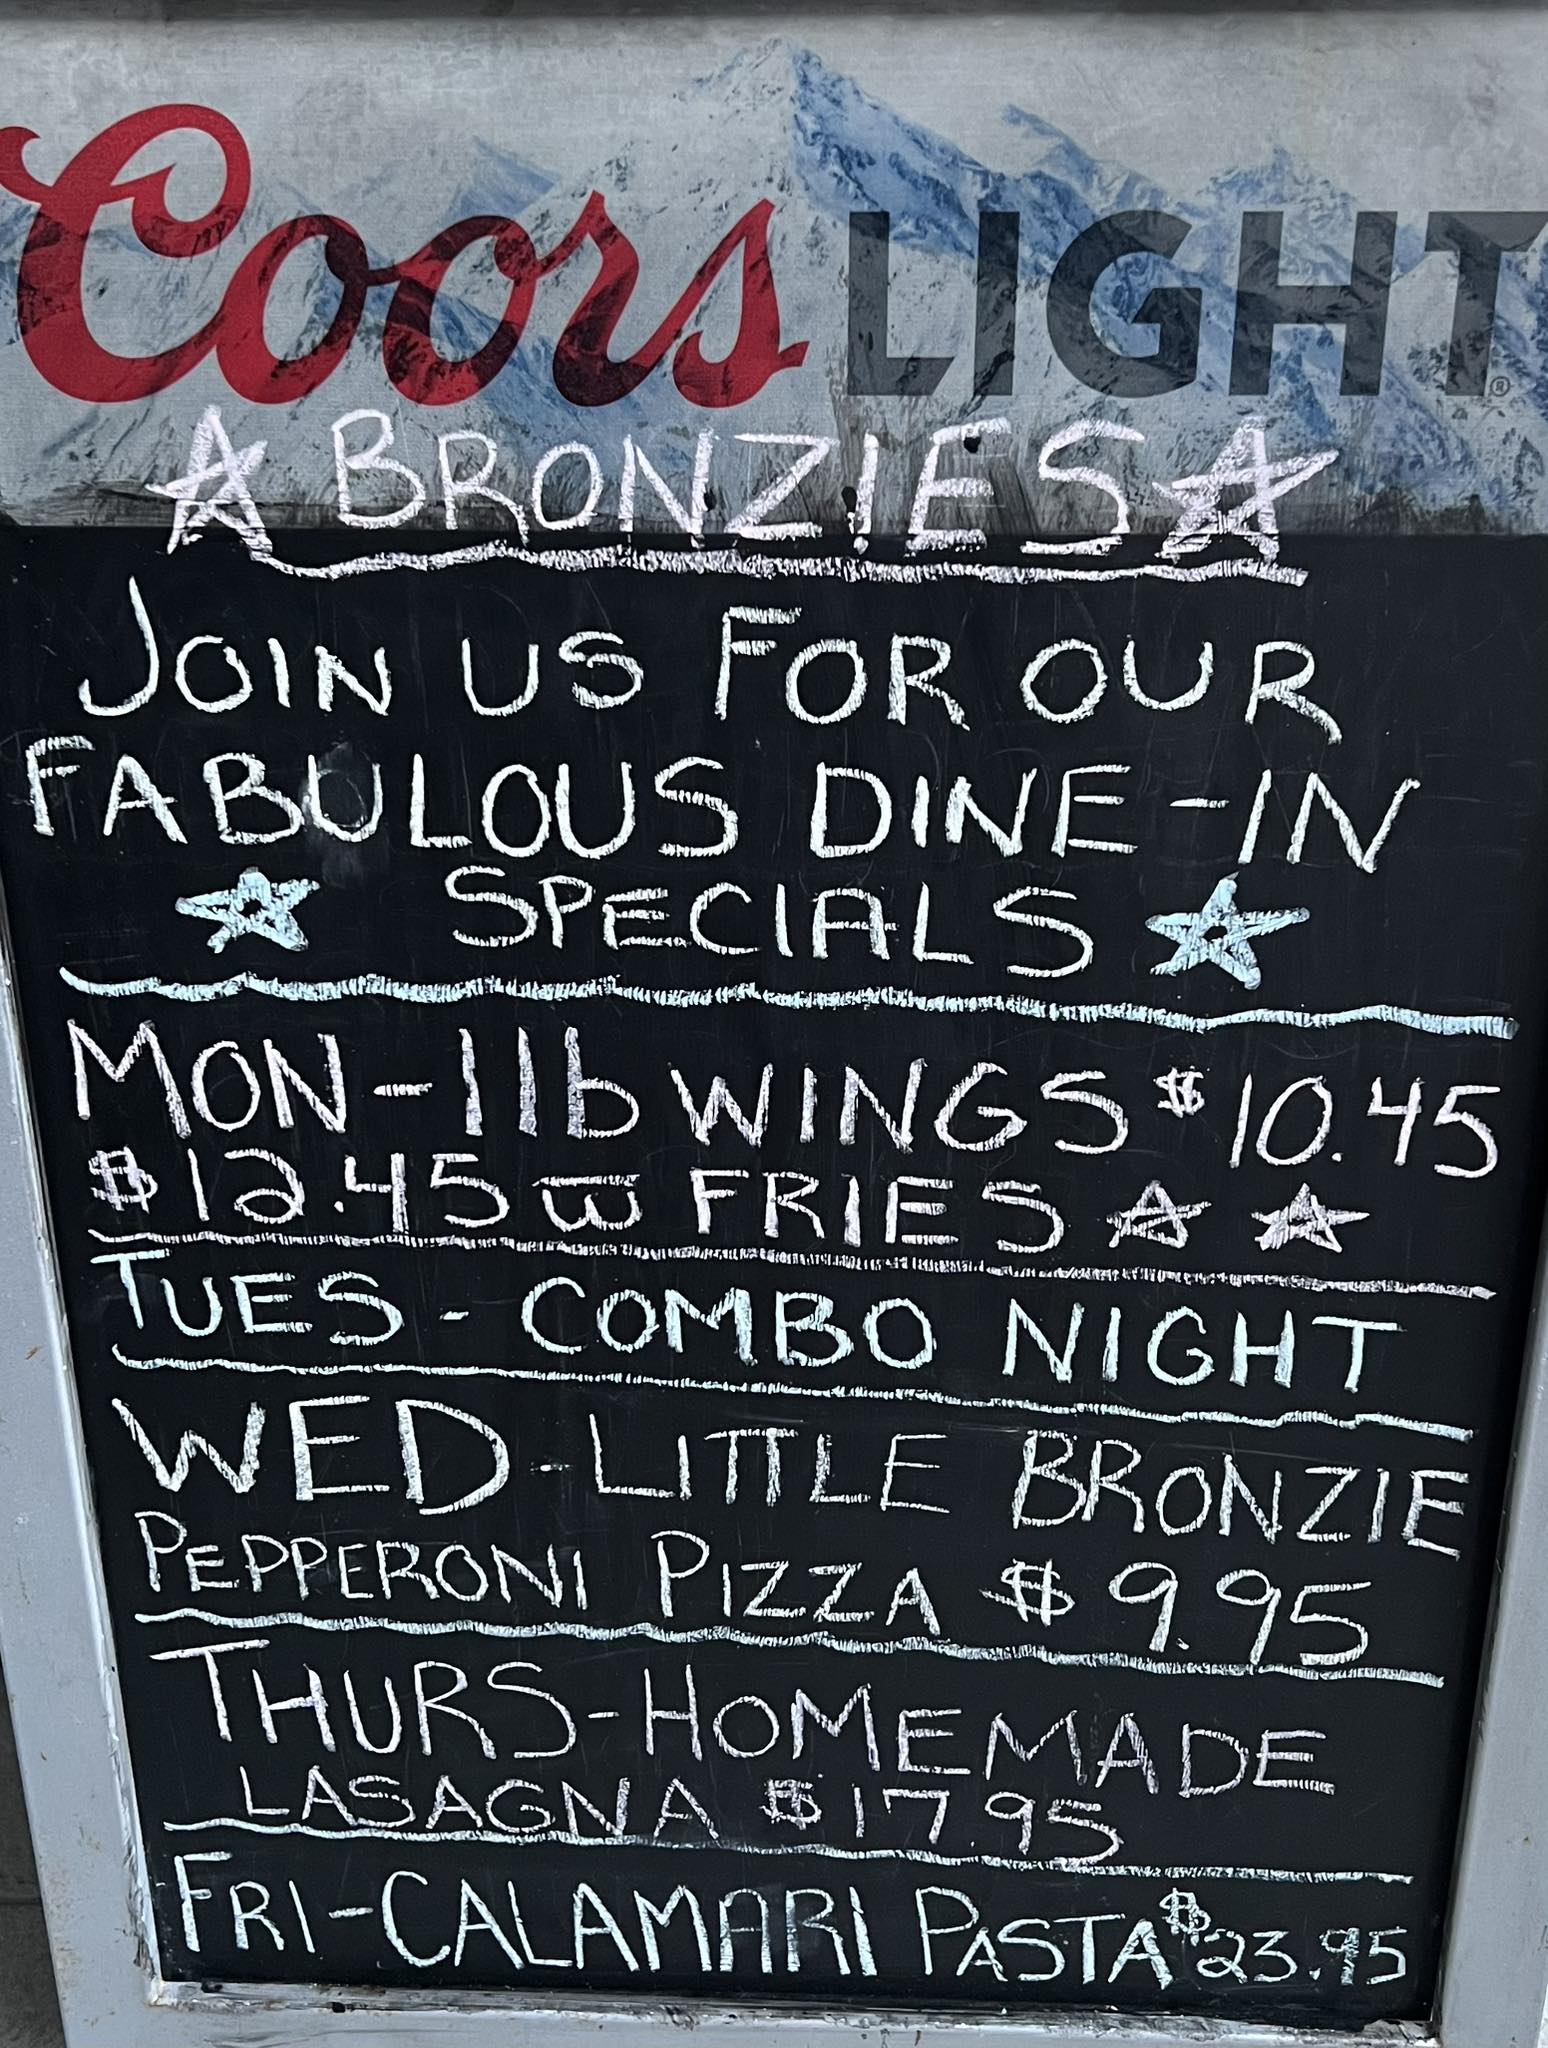 Coors LIGHT
BRONZIES
JOIN US FOR OUR
FABULOUS DINE-IN
SPECIALS
MON-1lb WINGS $10.45
$12.45 w FRIES
TUES - COMBO NIGHT
WED - LITTLE BRONZIE
PEPPERONI PIZZA $9.95
THURS-HOMEMADE
LASAGNA $17.95
FRI-CALAMARI PASTA $23.95